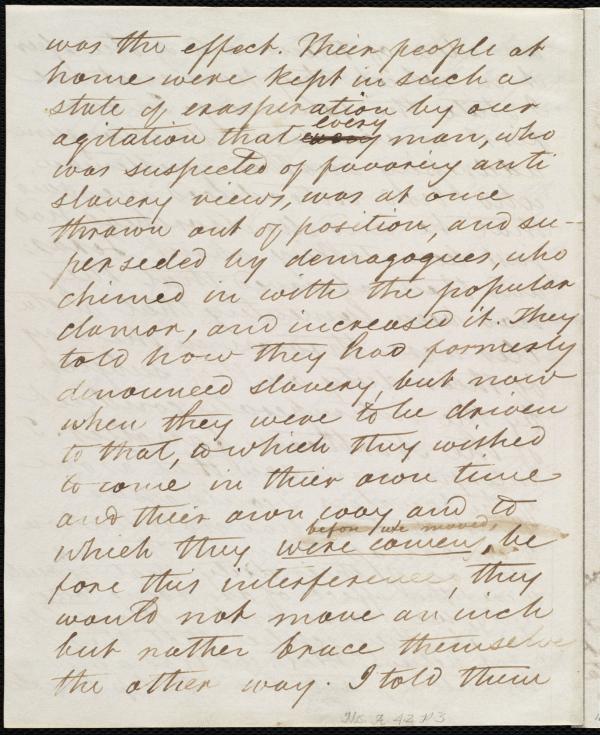 was the effect. Their people at
home were kept in such a
state of exasperation by our
agitation that every man, who
was suspected of favoring anti
slavery views, was at once
thrown out of position, and su-
perseded by demagogues, who
chimed in with the popular
clamor, and increased it. They
told how they had formerly
denounced slavery, but now
when they were to be driven
to that, to which they wished
to come in their own time
and their own way and to
before we moved,
which they were coming, be
fore this interference, they
would not move an inch
but rather brace themselves
the other way. I told them